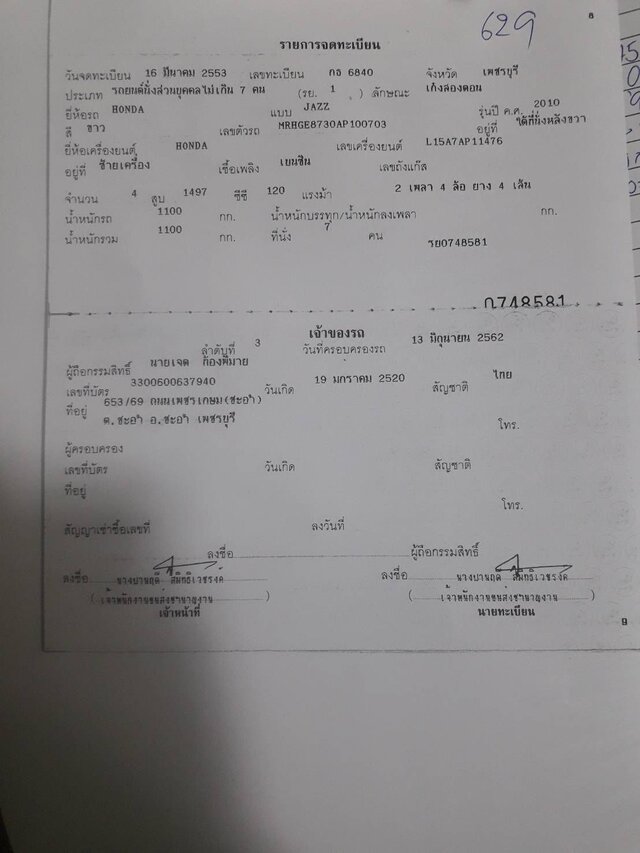 629
8
รายการจดทะเบียน
วันจดทะเบียน 16 มีนาคม 2553 เลขทะเบียน กธ 6840 จังหวัด เพชรบุรี
ประเภท รถยนต์นั่งส่วนบุคคลไม่เกิน 7 คน (รย. 1 ) ลักษณะ เก๋งสองตอน
ยี่ห้อรถ HONDA แบบ JAZZ รุ่นปี ค.ศ. 2010
สี ขาว เลขตัวรถ MRHGE8730AP100703 อยู่ที่ ใต้ที่นั่งหลังขวา
ยี่ห้อเครื่องยนต์ HONDA เลขเครื่องยนต์ L15A7AP11476
อยู่ที่ ซ้ายเครื่อง เชื้อเพลิง เบนซิน เลขถังแก๊ส
จำนวน 4 สูบ 1497 ซีซี 120 แรงม้า 2 เพลา 4 ล้อ ยาง 4 เส้น
น้ำหนักรถ 1100 กก. น้ำหนักบรรทุก/น้ำหนักลงเพลา กก.
น้ำหนักรวม 1100 กก. ที่นั่ง 7 คน รย0748581
0748581
เจ้าของรถ
ลำดับที่ 3 วันที่ครอบครองรถ 13 มิถุนายน 2562
ผู้ถือกรรมสิทธิ์ นายเจต ก้องพิมาย
เลขที่บัตร 3300600637940 วันเกิด 19 มกราคม 2520 สัญชาติ ไทย
ที่อยู่ 653/69 ถนนเพชรเกษม(ชะอำ)
ต.ชะอำ อ.ชะอำ เพชรบุรี โทร.
ผู้ครอบครอง
เลขที่บัตร วันเกิด สัญชาติ
ที่อยู่
โทร.
สัญญาเช่าซื้อเลขที่ ลงวันที่
ลงชื่อ ผู้ถือกรรมสิทธิ์
ลงชื่อ ลงชื่อ
(เจ้าพนักงานขนส่งชำนาญงาน) (เจ้าพนักงานขนส่งชำนาญงาน)
เจ้าหน้าที่ นายทะเบียน
9